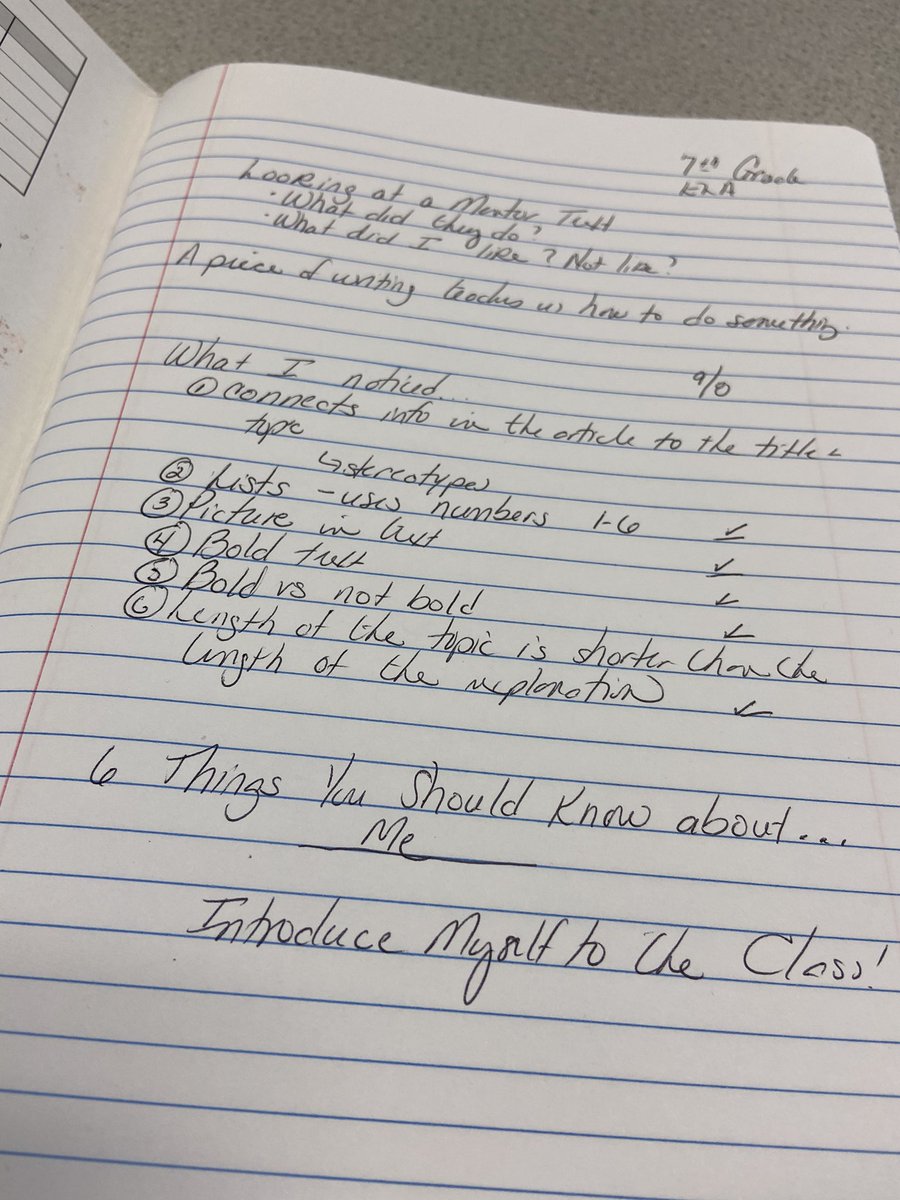 7th Grade
ELA
Looking at a Mentor Text
· What did they do?
· What did I like? Not like?
A piece of writing teaches us how to do something.
What I noticed...
① connects info in the article to the title &
topic
↳ stereotypes
② Lists - uses numbers 1-6 ✓
③ Picture in text ✓
④ Bold text ✓
⑤ Bold vs not bold ✓
⑥ Length of the topic is shorter than the
length of the explanation ✓
6 Things You Should Know about...
Me
Introduce Myself to the Class!